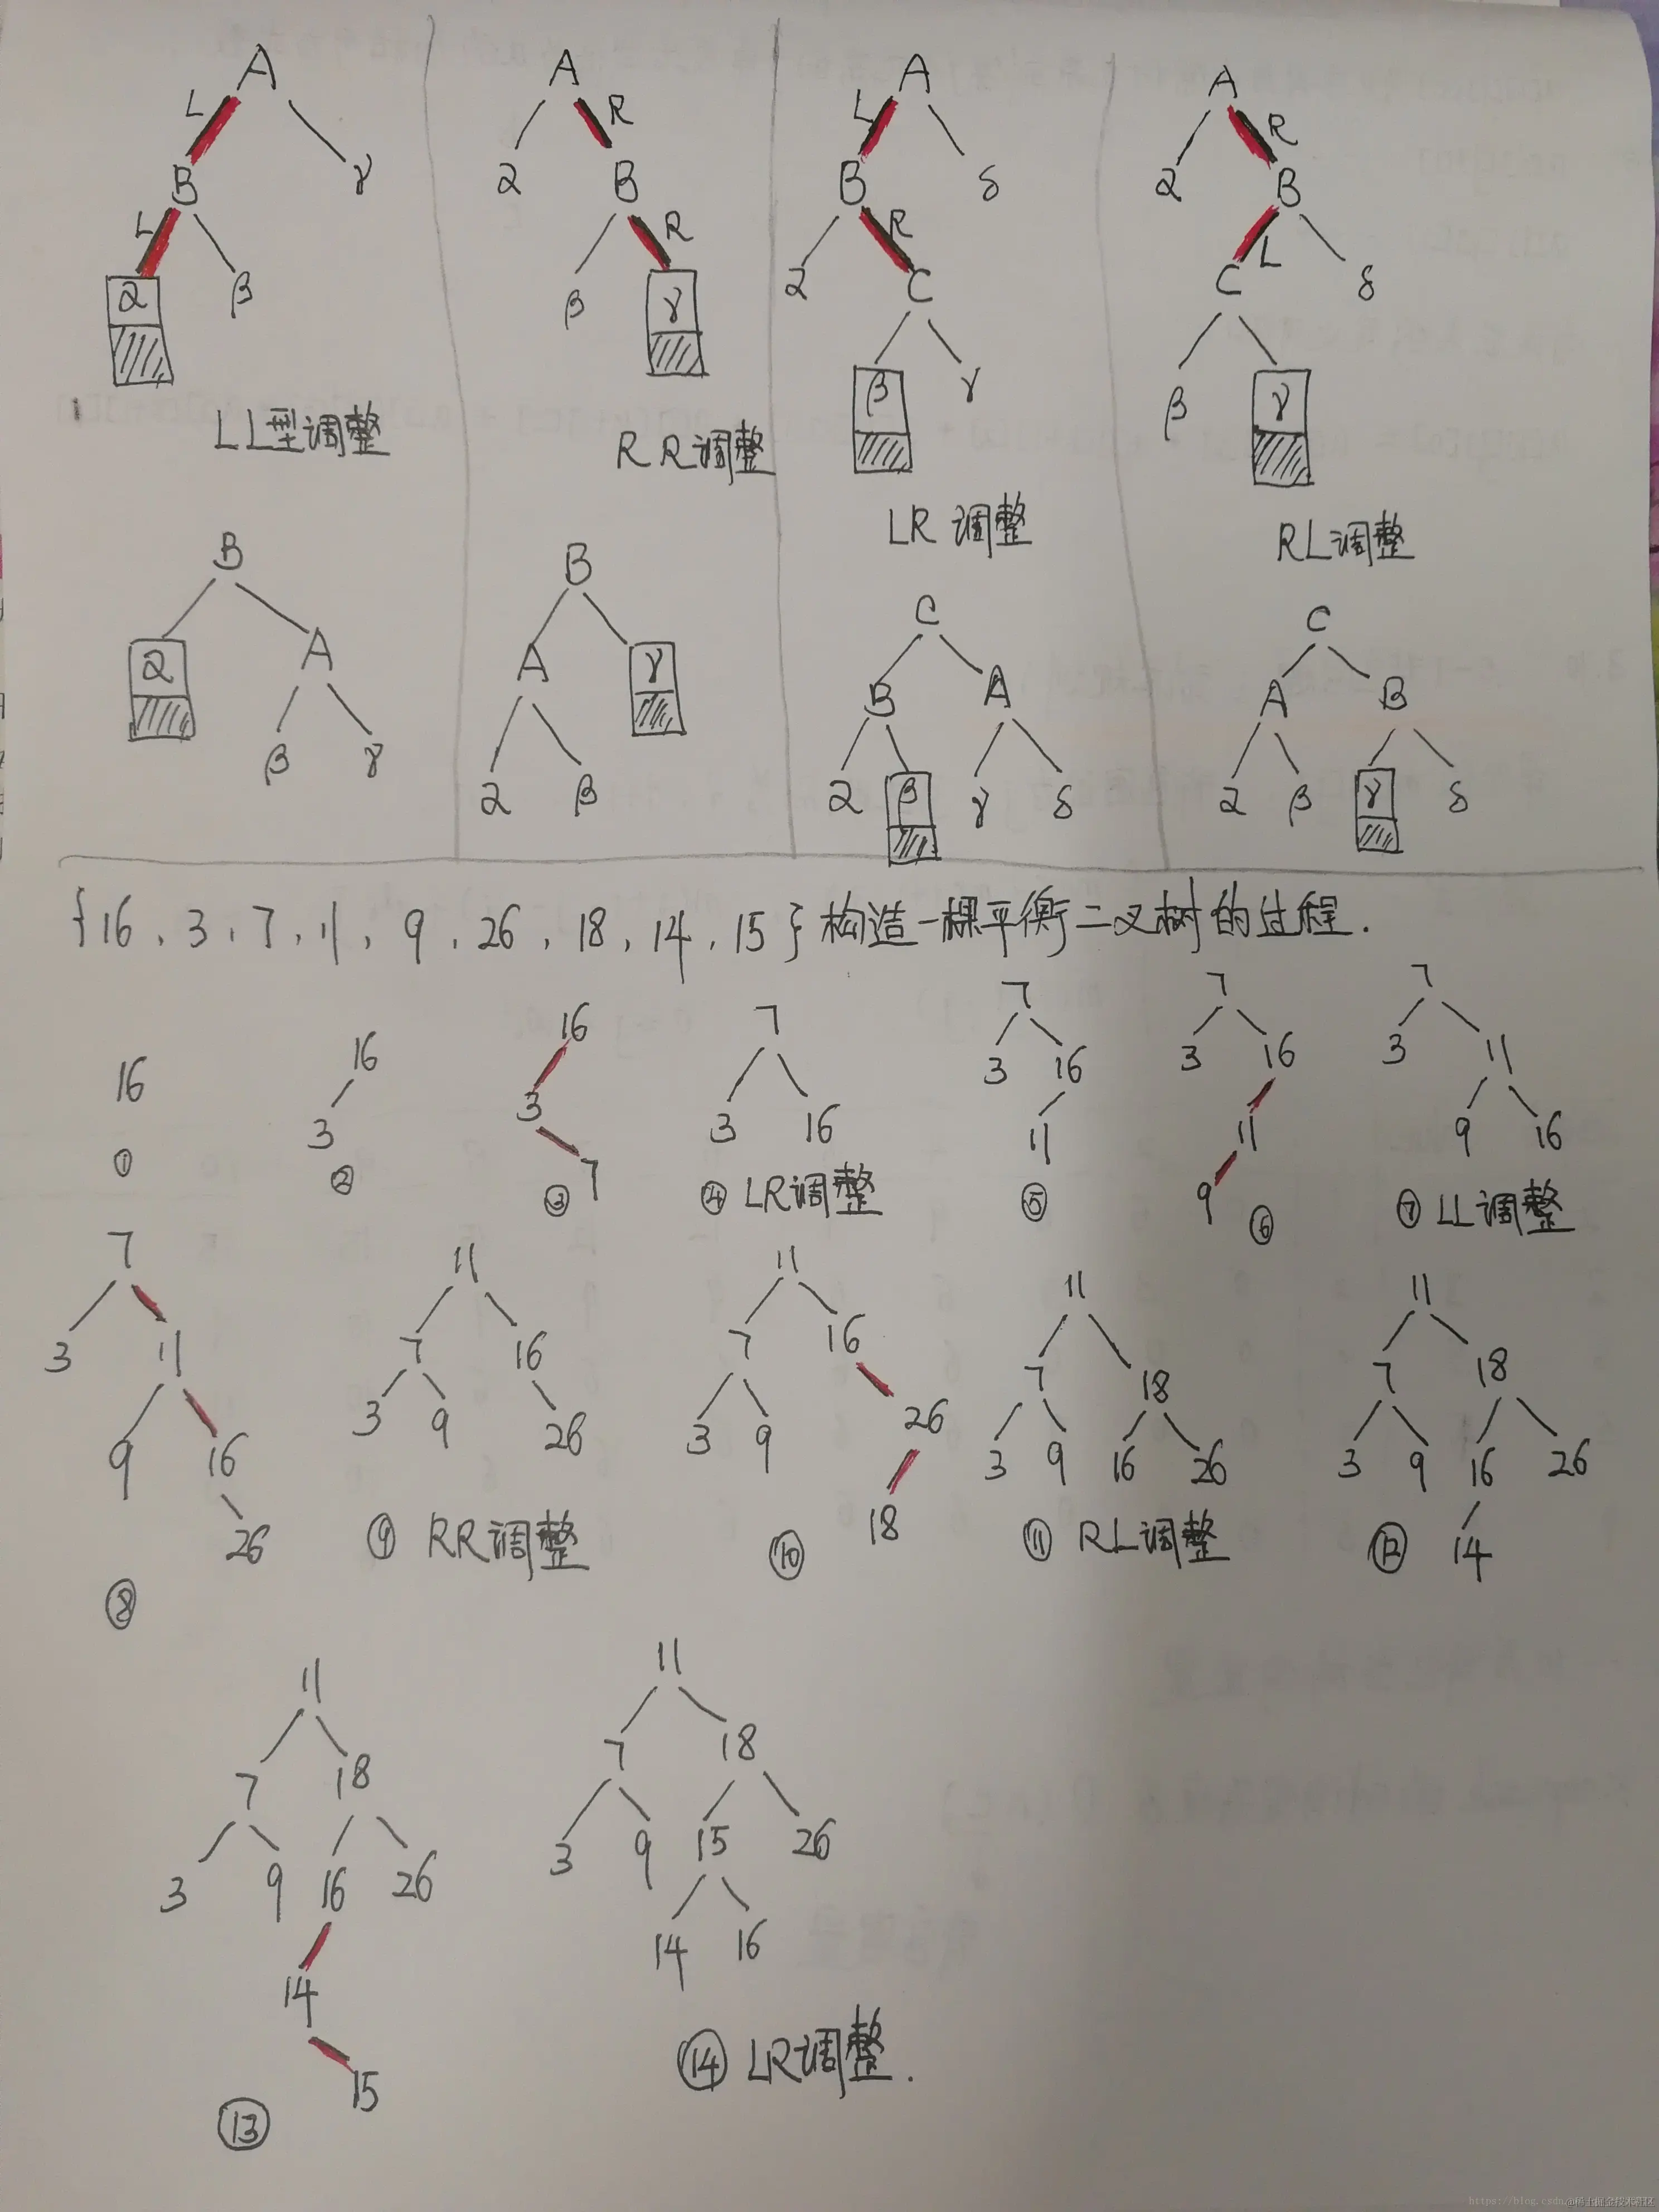 A A A A
L R L R
2 B γ 2 B B δ 2 B
L R R L
2 β β γ 2 C C δ
β γ β γ
LL型调整 RR调整 LR 调整 RL调整
B B C C
2 A A γ B A A B
β γ 2 β 2 β γ δ 2 β γ δ
{16, 3, 7, 11, 9, 26, 18, 14, 15} 构造一棵平衡二叉树的过程.
16
①
16
3
②
16
3
7
③
7
3 16
④ LR调整
7
3 16
11
⑤
7
3 16
11
9
⑥
7
3 11
9 16
⑦ LL调整
7
3 11
9 16
26
⑧
11
7 16
3 9 26
⑨ RR调整
11
7 16
3 9 26
18
⑩
11
7 18
3 9 16 26
⑪ RL调整
11
7 18
3 9 16 26
14
⑫
11
7 18
3 9 16 26
14
15
⑬
11
7 18
3 9 15 26
14 16
⑭ LR调整.